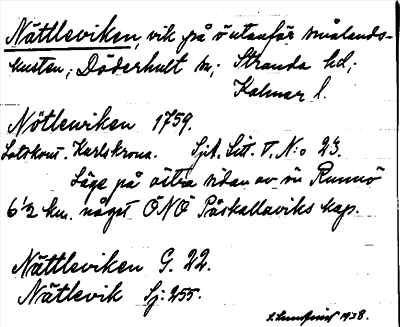 Nättleviken, vik på ö utanför Smålands-
kusten, Döderhult sn, Stranda hd,
Kalmar l.
Nötlewiken 1759.
Lotskont. Karlskrona. Sjk. Litt. V, N:o 23.
Läge på östra sidan av ön Runnö
6½ km. något ÖNÖ Påskallaviks kap.
Nättleviken G. 22.
Nätlevik Sj: 255.
1938.